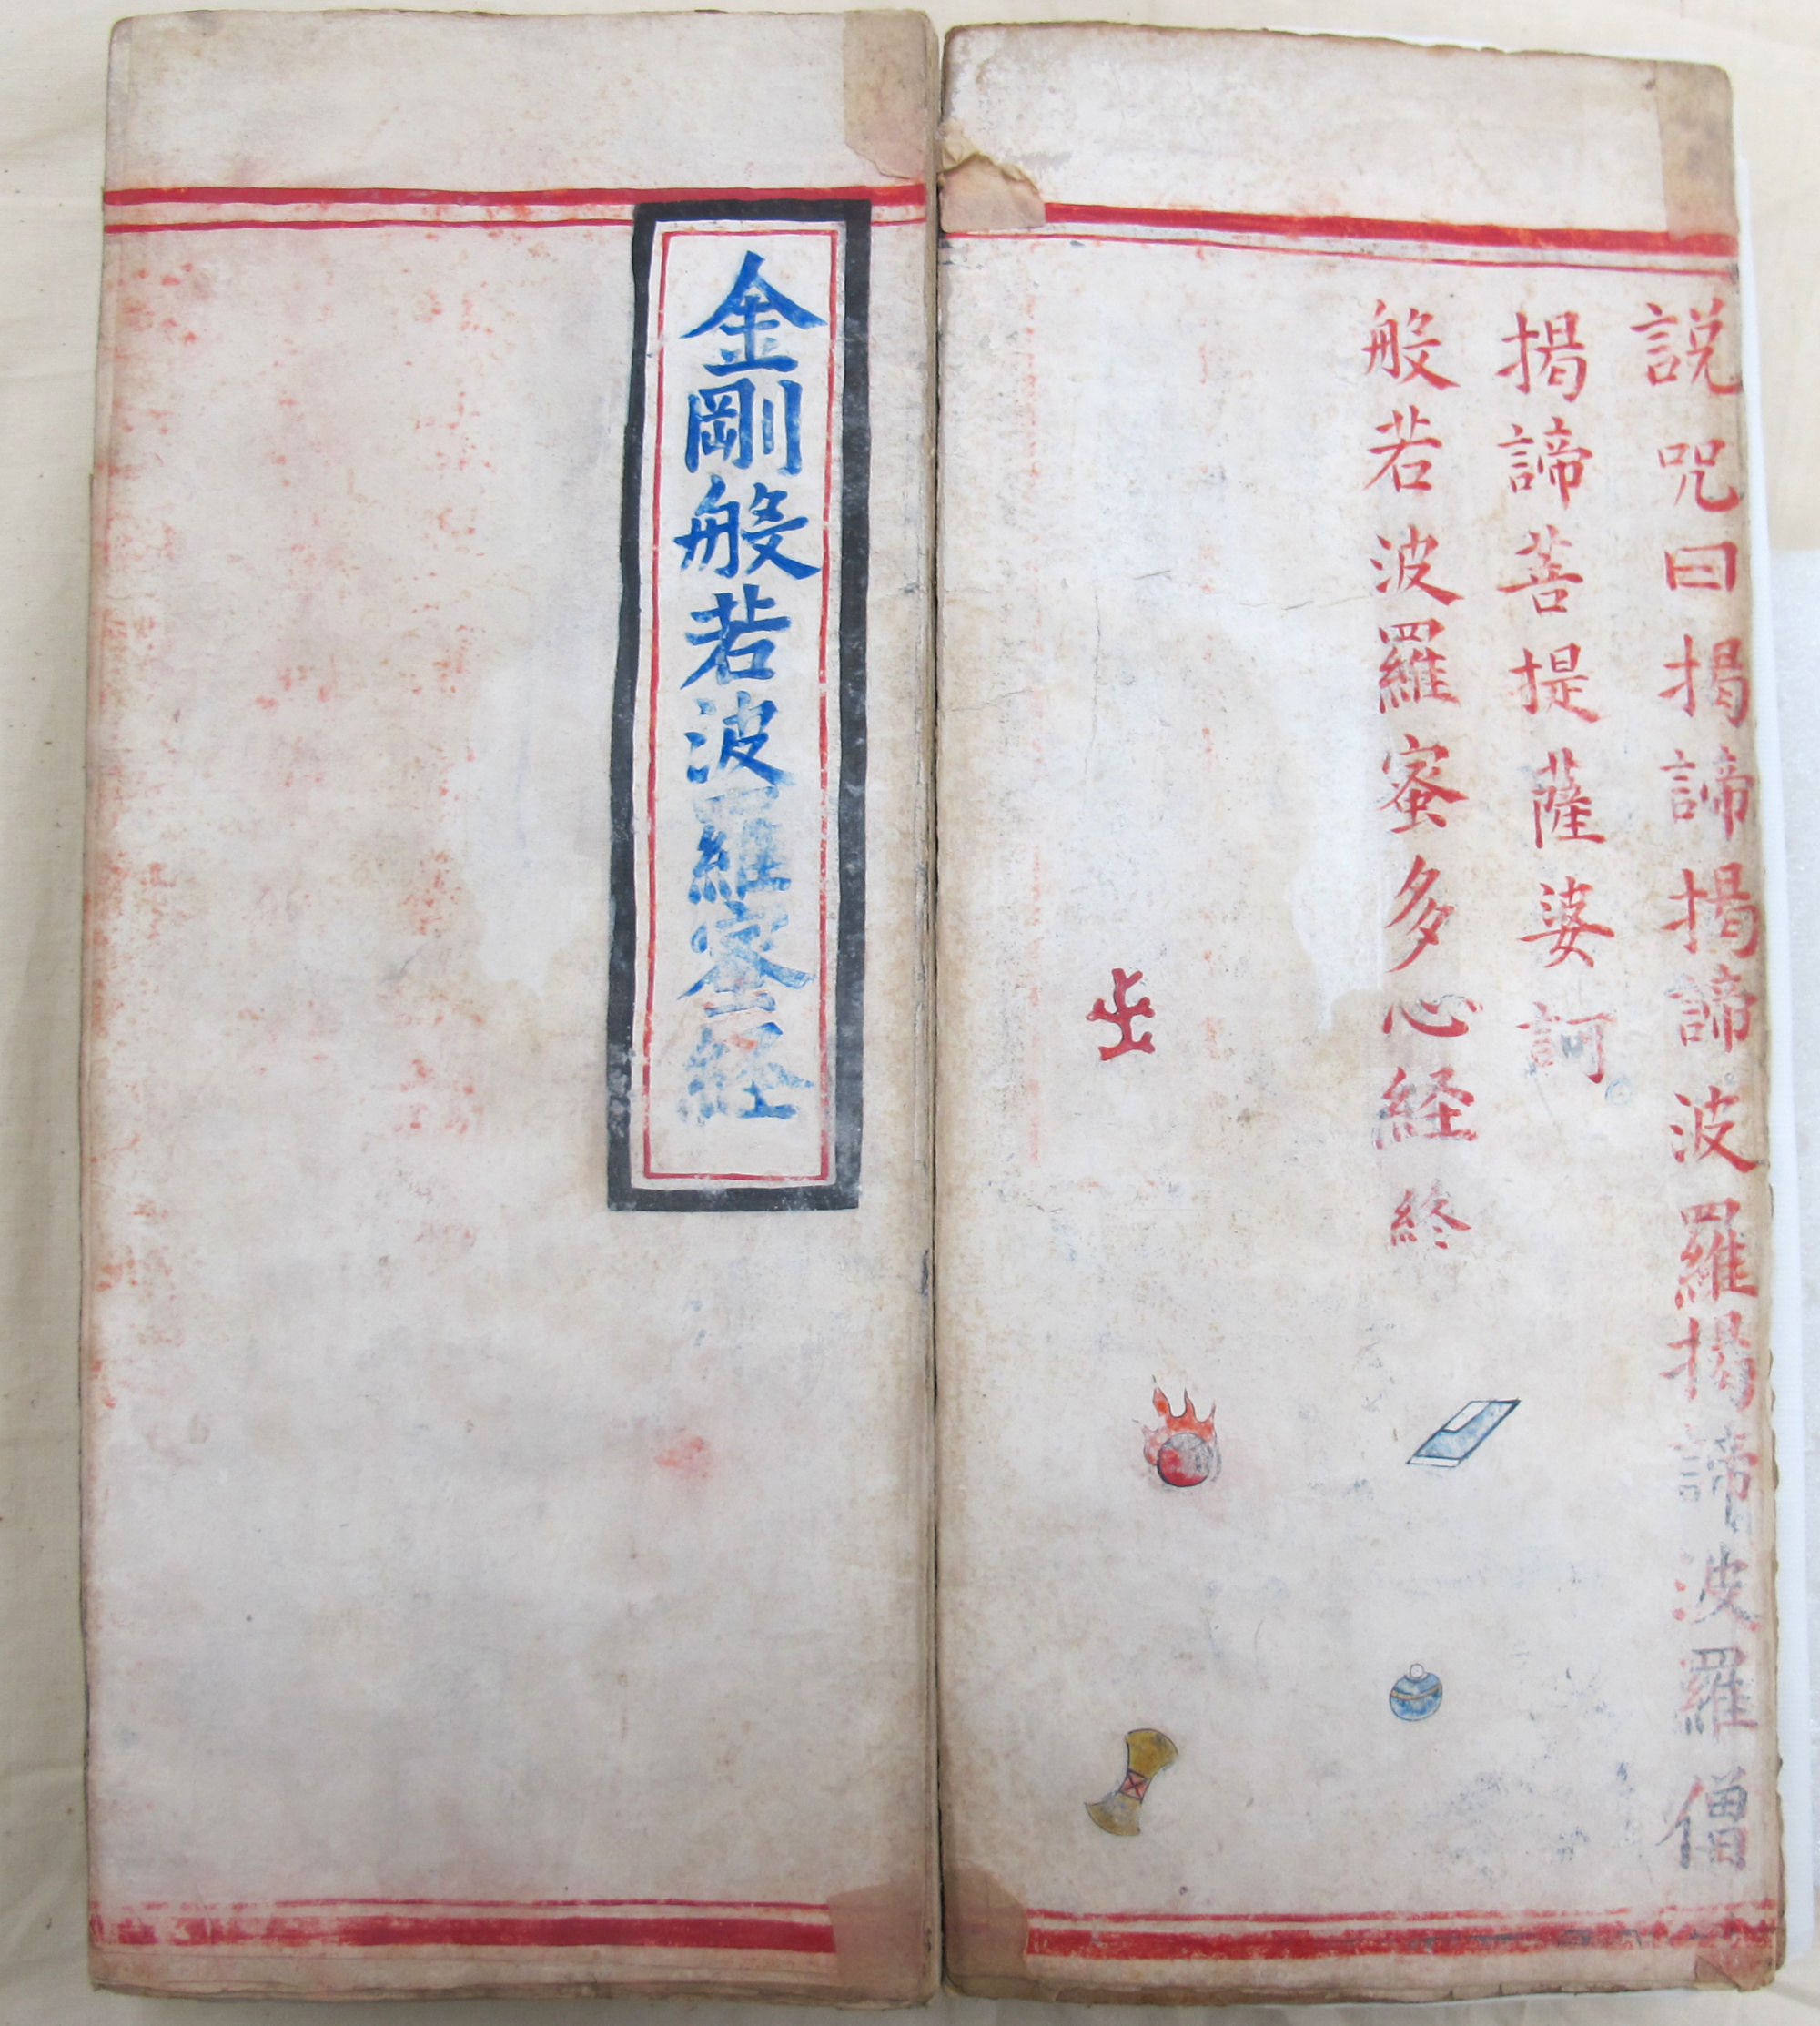 説咒曰揭諦揭諦波羅揭諦波羅僧
揭諦菩提薩婆訶
般若波羅蜜多心経終
金剛般若波羅蜜経